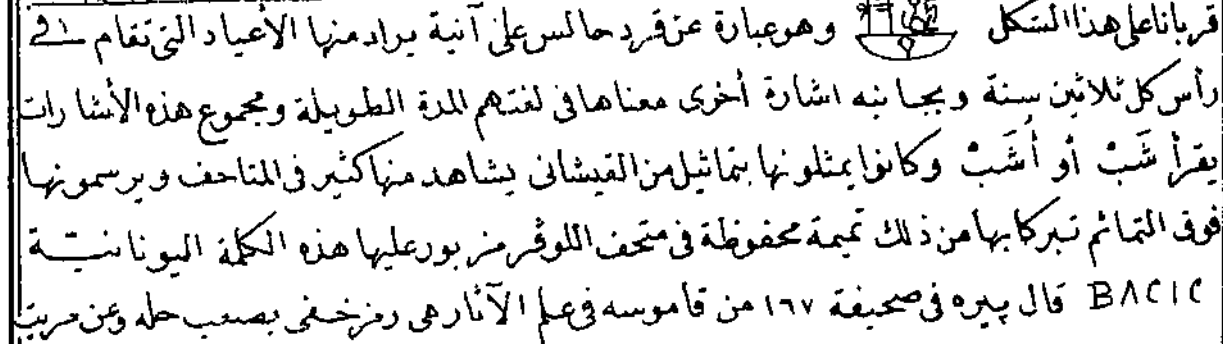 قرباناعلى هذا الشكل وهوعبارة عن قرد جالس على آنية يراد منها الأعياد التى تقام فى
رأس كل ثلاثين سنة وبجانبه اشارة أخرى معناها فى لغتهم المدة الطويلة ومجموع هذه الأشارات
يقرأ شَبْ أو أُشَبْ وكانوا يمثلونها بتماثيل من القيشانى يشاهد منها كثير فى المتاحف ويرسمونها
فوق التمائم تبركا بها من ذلك تميمة محفوظة فى متحف اللوڤر مزبور عليها هذه الكلمة اليونانية
BACIC قال پيره فى صحيفة ١٦٧ من قاموسه فى علم الآثار هى رمز خفى يصعب حله وعن مريت